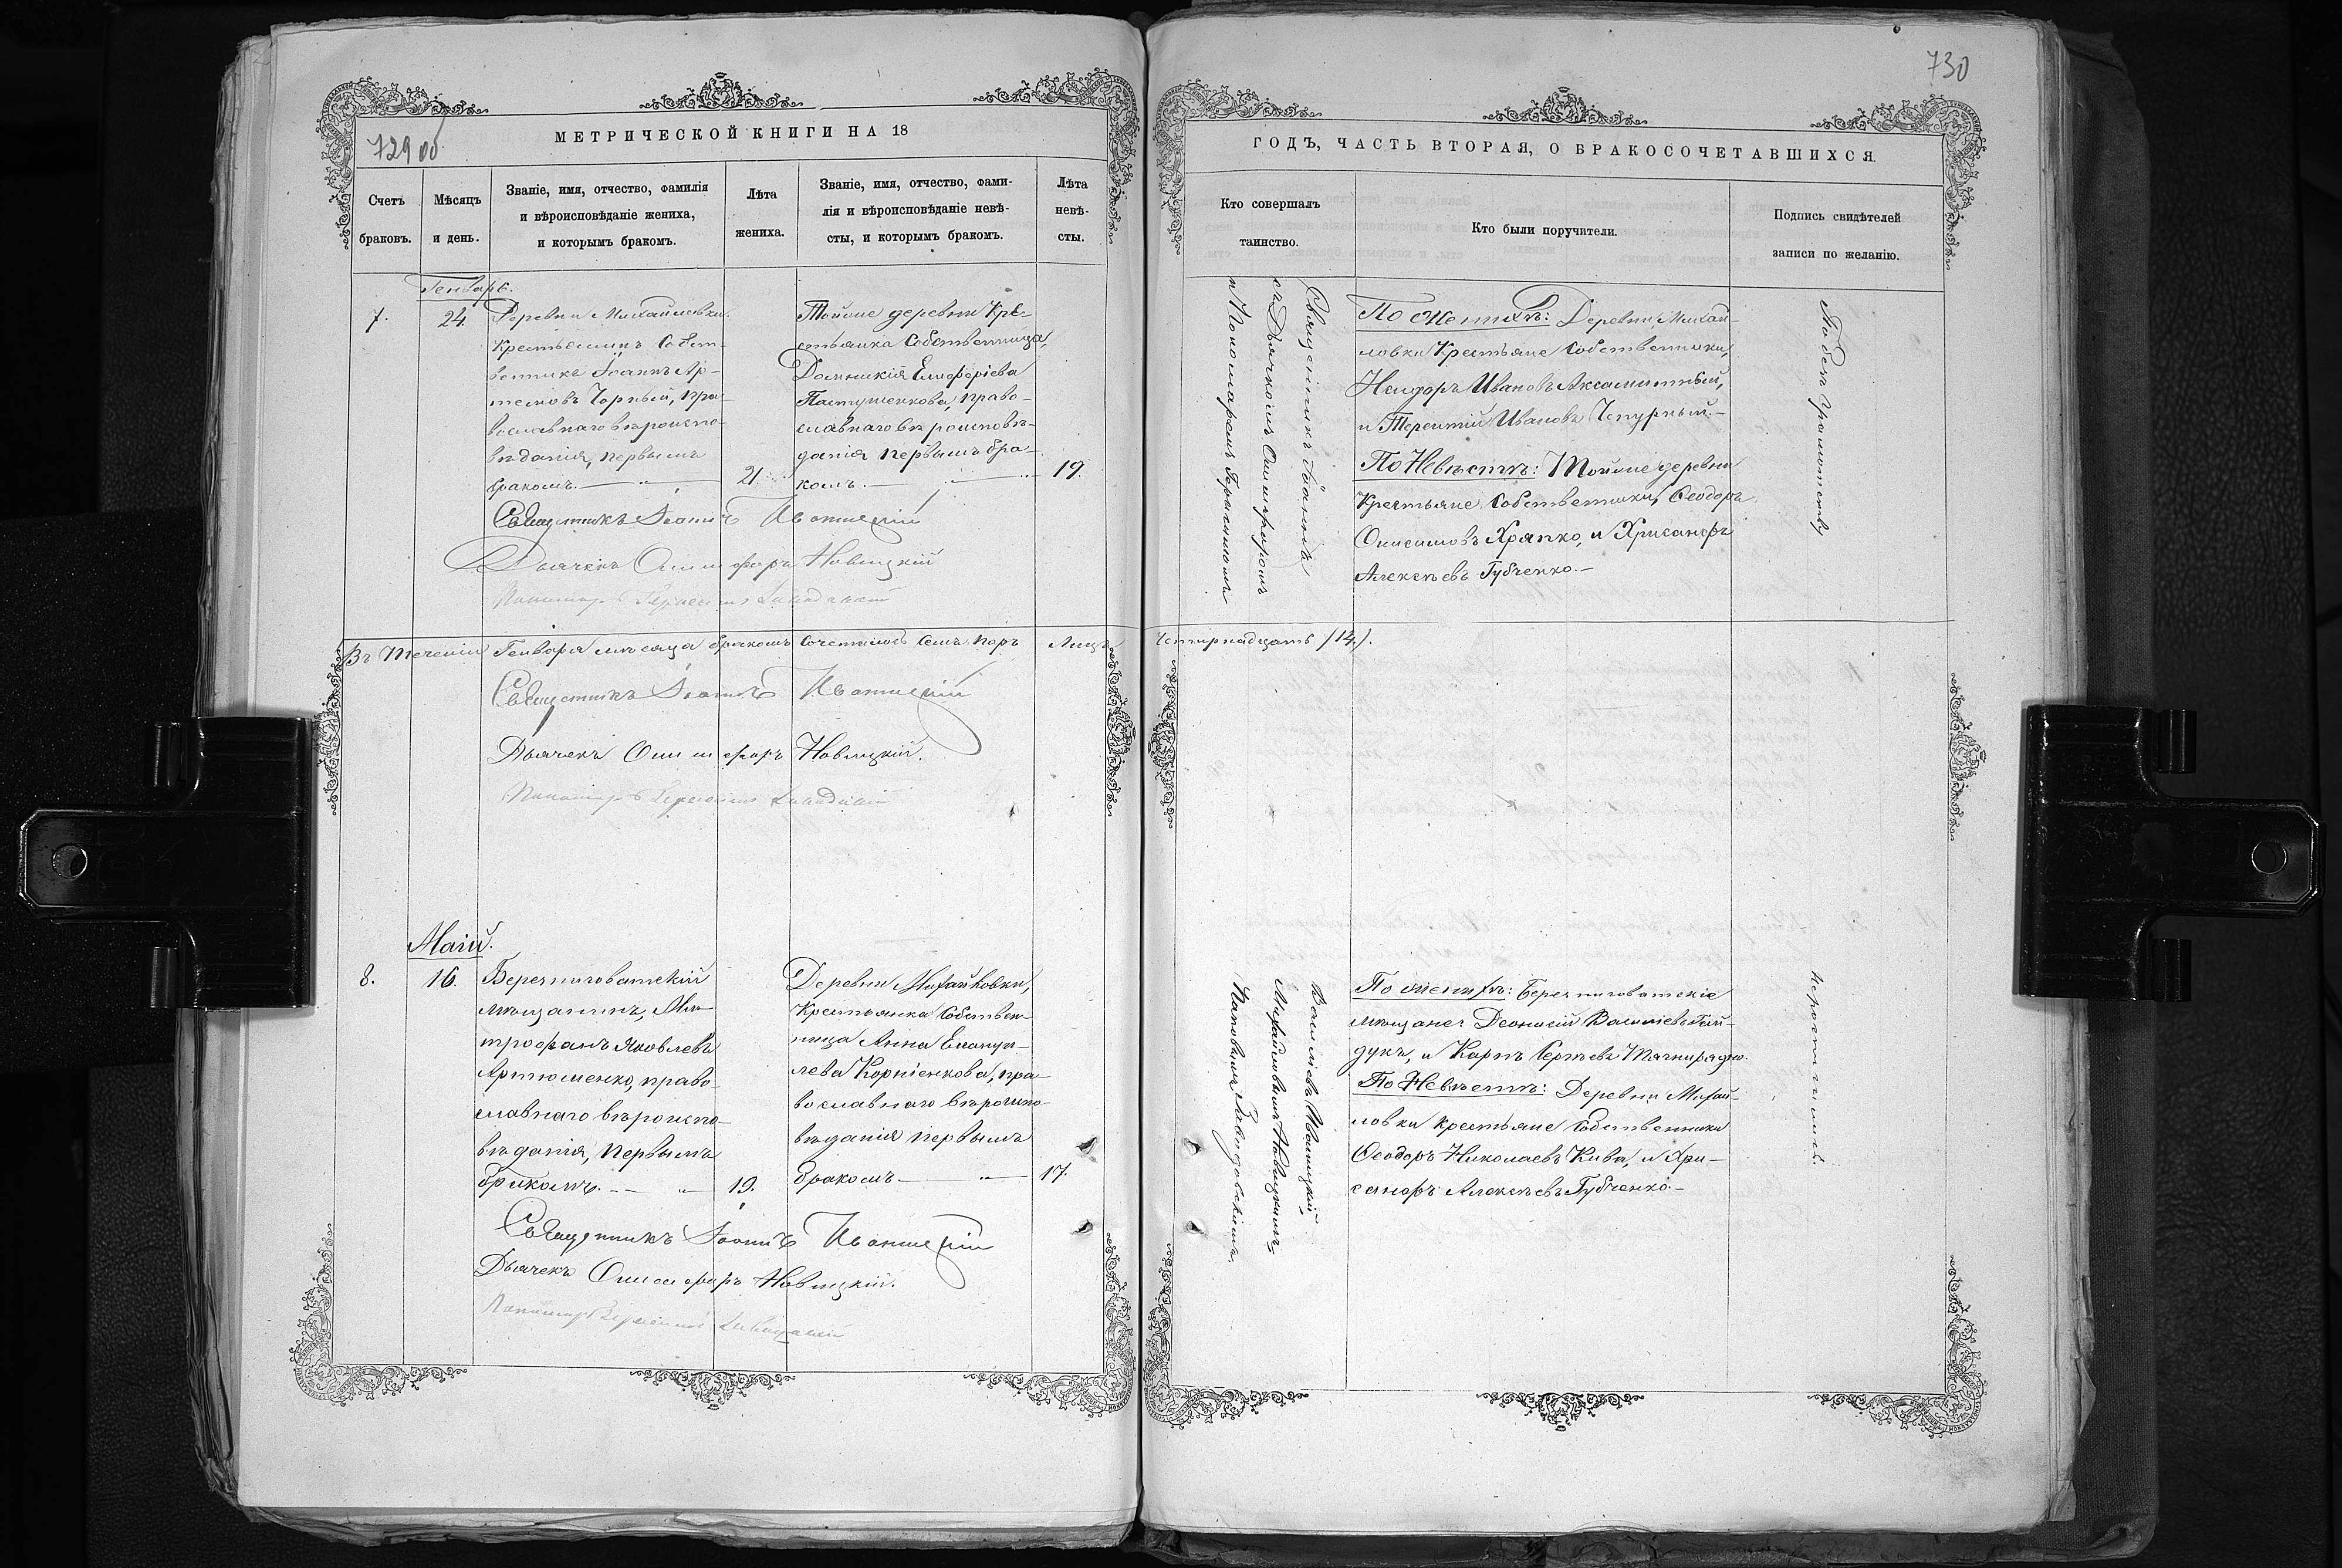 729 об
МЕТРИЧЕСКОЙ КНИГИ НА 18
Счетъ браковъ.
Мѣсяцъ и день.
Званіе, имя, отчество, фамилія
и вѣроисповѣданіе жениха,
и которымъ бракомъ.
Лѣта жениха.
Званіе, имя, отчество, фами-
лія и вѣроисповѣданіе невѣ-
сты, и которымъ бракомъ.
Лѣта невѣ-
сты.
Генварь.
7.
24.
Деревни Михайловки
Крестьянинъ Собст-
венникъ Іоаннъ Ар-
темовъ Чорный, пра-
вославнаго вѣроиспо-
вѣданія, первымъ
бракомъ.
21.
Тойже деревни Кре-
стьянка Собственница,
Домникія Елевферіева
Пастушенкова, право-
славнаго вѣроисповѣ-
данія первымъ бра-
комъ.
19.
Священникъ Іоаннъ Иваницкій
Дьячекъ Онисифоръ Новицкій
Пономарь Герасимъ
Въ теченіи Генваря мѣсяца бракомъ сочеталось семъ паръ Лицъ
Священникъ Іоаннъ Иваницкій
Дьячекъ Онисифоръ Новицкій.
Пономарь Герасимъ
Маій.
8.
16.
Березниговатскій
мѣщанинъ, Ми-
трофанъ Яковлевъ
Артюменко, право-
славнаго вѣроиспо-
вѣданія, первымъ
бракомъ.
19.
Деревни Михайловки,
Крестьянка Собствен-
ница Анна Емануи-
лева Корніенкова, пра-
вославнаго вѣроиспо-
вѣданія первымъ
бракомъ
17.
Священникъ Іоаннъ Иваницкій
Дьячекъ Онисифоръ Новицкій.
Пономарь Герасимъ
730
ГОДЪ, ЧАСТЬ ВТОРАЯ, О БРАКОСОЧЕТАВШИХСЯ.
Кто совершалъ
таинство.
Кто были поручители.
Подпись свидѣтелей
записи по желанію.
Священникъ Іоаннъ
съ Дьячкомъ Онисифоромъ
и Пономаремъ Герасимомъ
По Женихѣ: Деревни Михай-
ловки Крестьяне Собственники,
Исидоръ Ивановъ Аксамитный,
и Терентій Ивановъ Чепурный.
По Невѣстѣ: Тойже деревни
Крестьяне Собственники, Ѳеодоръ
Онисимовъ Хряпко, и Хрисанфъ
Алексѣевъ Губченко.
Четырнадцать (14).
По женихѣ: Березниговатскіе
мѣщане Діонисій Василіевъ Гай-
дукъ, и Карпъ Сергѣевъ
По Невѣстѣ: Деревни Михай-
ловки крестьяне Собственники
Ѳеодоръ Николаевъ Кива, и Хри-
санфъ Алексѣевъ Губченко.